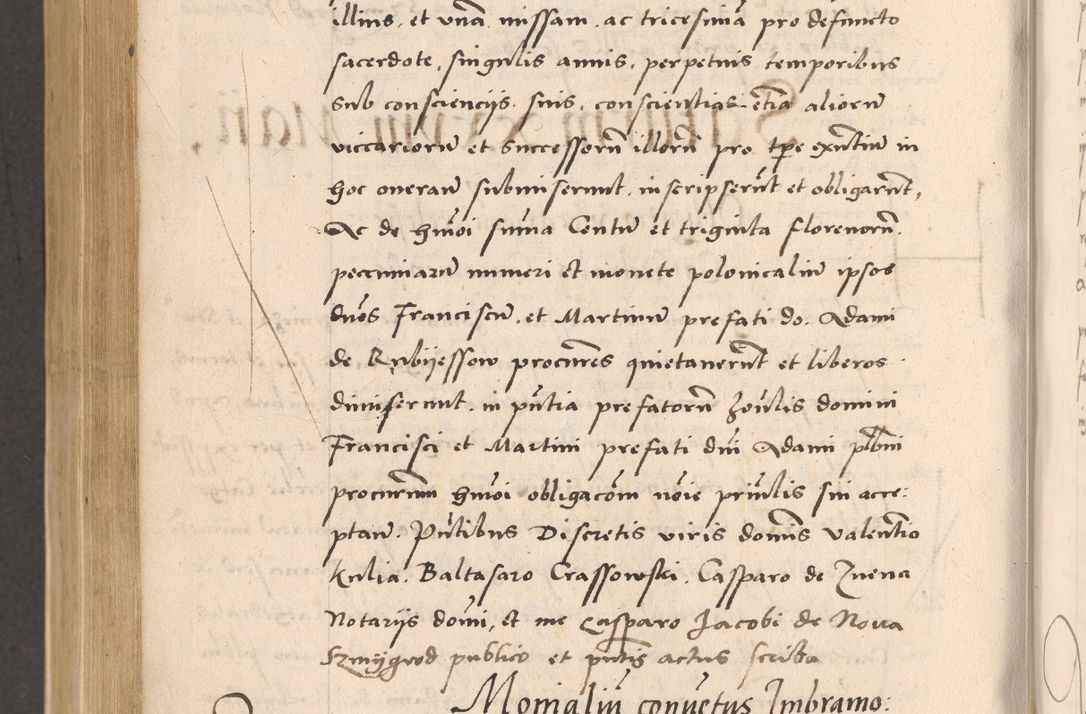 illius, et vnā missam, ac tricesimā pro defuncto
sacerdote, singulis annis, perpetuis temporibus
sub conscienciis suis, conscientias etiā aliorū
viccariorū et successorū illorū pro tpe exn̄tiū in
hoc oneran̄ submiserunt, inscripserūt et obligarūt,
Ac de hmōi sūma Centū et triginta florenorū
pecuniarū numeri et monete polonicaliū ipsos
duōs Franciscū, et Martinū prefati do. Adami
de Rubijessow procurēs quietauerūt et liberos
dimiserunt, in pn̄tia prefatorū Joūlis domini
Francisci et Martini prefati dn̄i Adami plbn̄i
procurm̄ hmōi obligacōm nōie prin̄lis sui acce:
ptan̄. Pn̄tibus Discretis viris domīs Valentīo
Kulia, Baltasaro Crassowski, Casparo de
Notarijs domī, et me Casparo Jacobi de Noua
Szmygrod publico et pn̄tis actus scriba
Monialiū conuētus Imbramo: